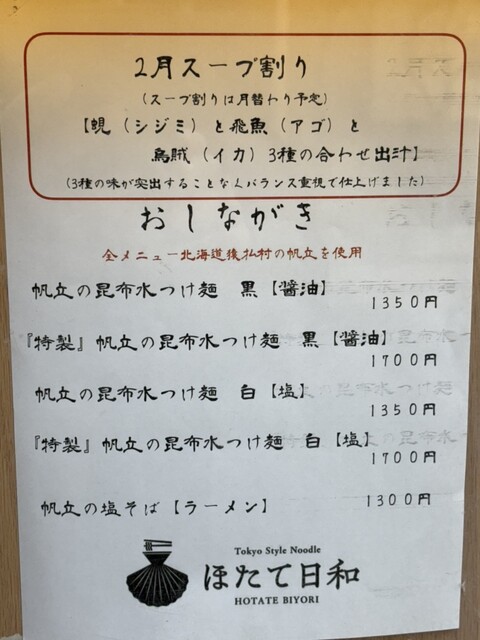 2月スープ割り
(スープ割りは月替わり予定)
【蜆（シジミ）と飛魚（アゴ）と
烏賊（イカ）3種の合わせ出汁】
(3種の味が突出することなくバランス重視で仕上げました)
おしながき
全メニュー北海道猿払村の帆立を使用
帆立の昆布水つけ麺　黒【醤油】
1350円
『特製』帆立の昆布水つけ麺　黒【醤油】
1700円
帆立の昆布水つけ麺　白【塩】
1350円
『特製』帆立の昆布水つけ麺　白【塩】
1700円
帆立の塩そば【ラーメン】　1300円
Tokyo Style Noodle
ほたて日和
HOTATE BIYORI